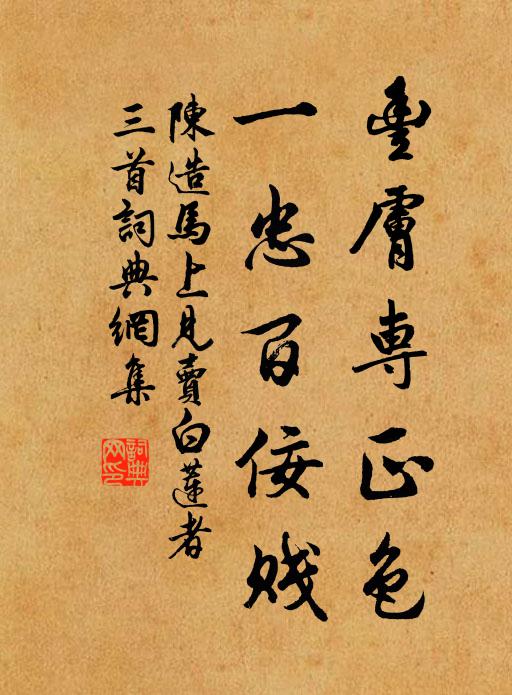 豐膚專正色
一忠百佞賤
陳造馬上見賣白蓮者
三首詞典網集
詞典网印